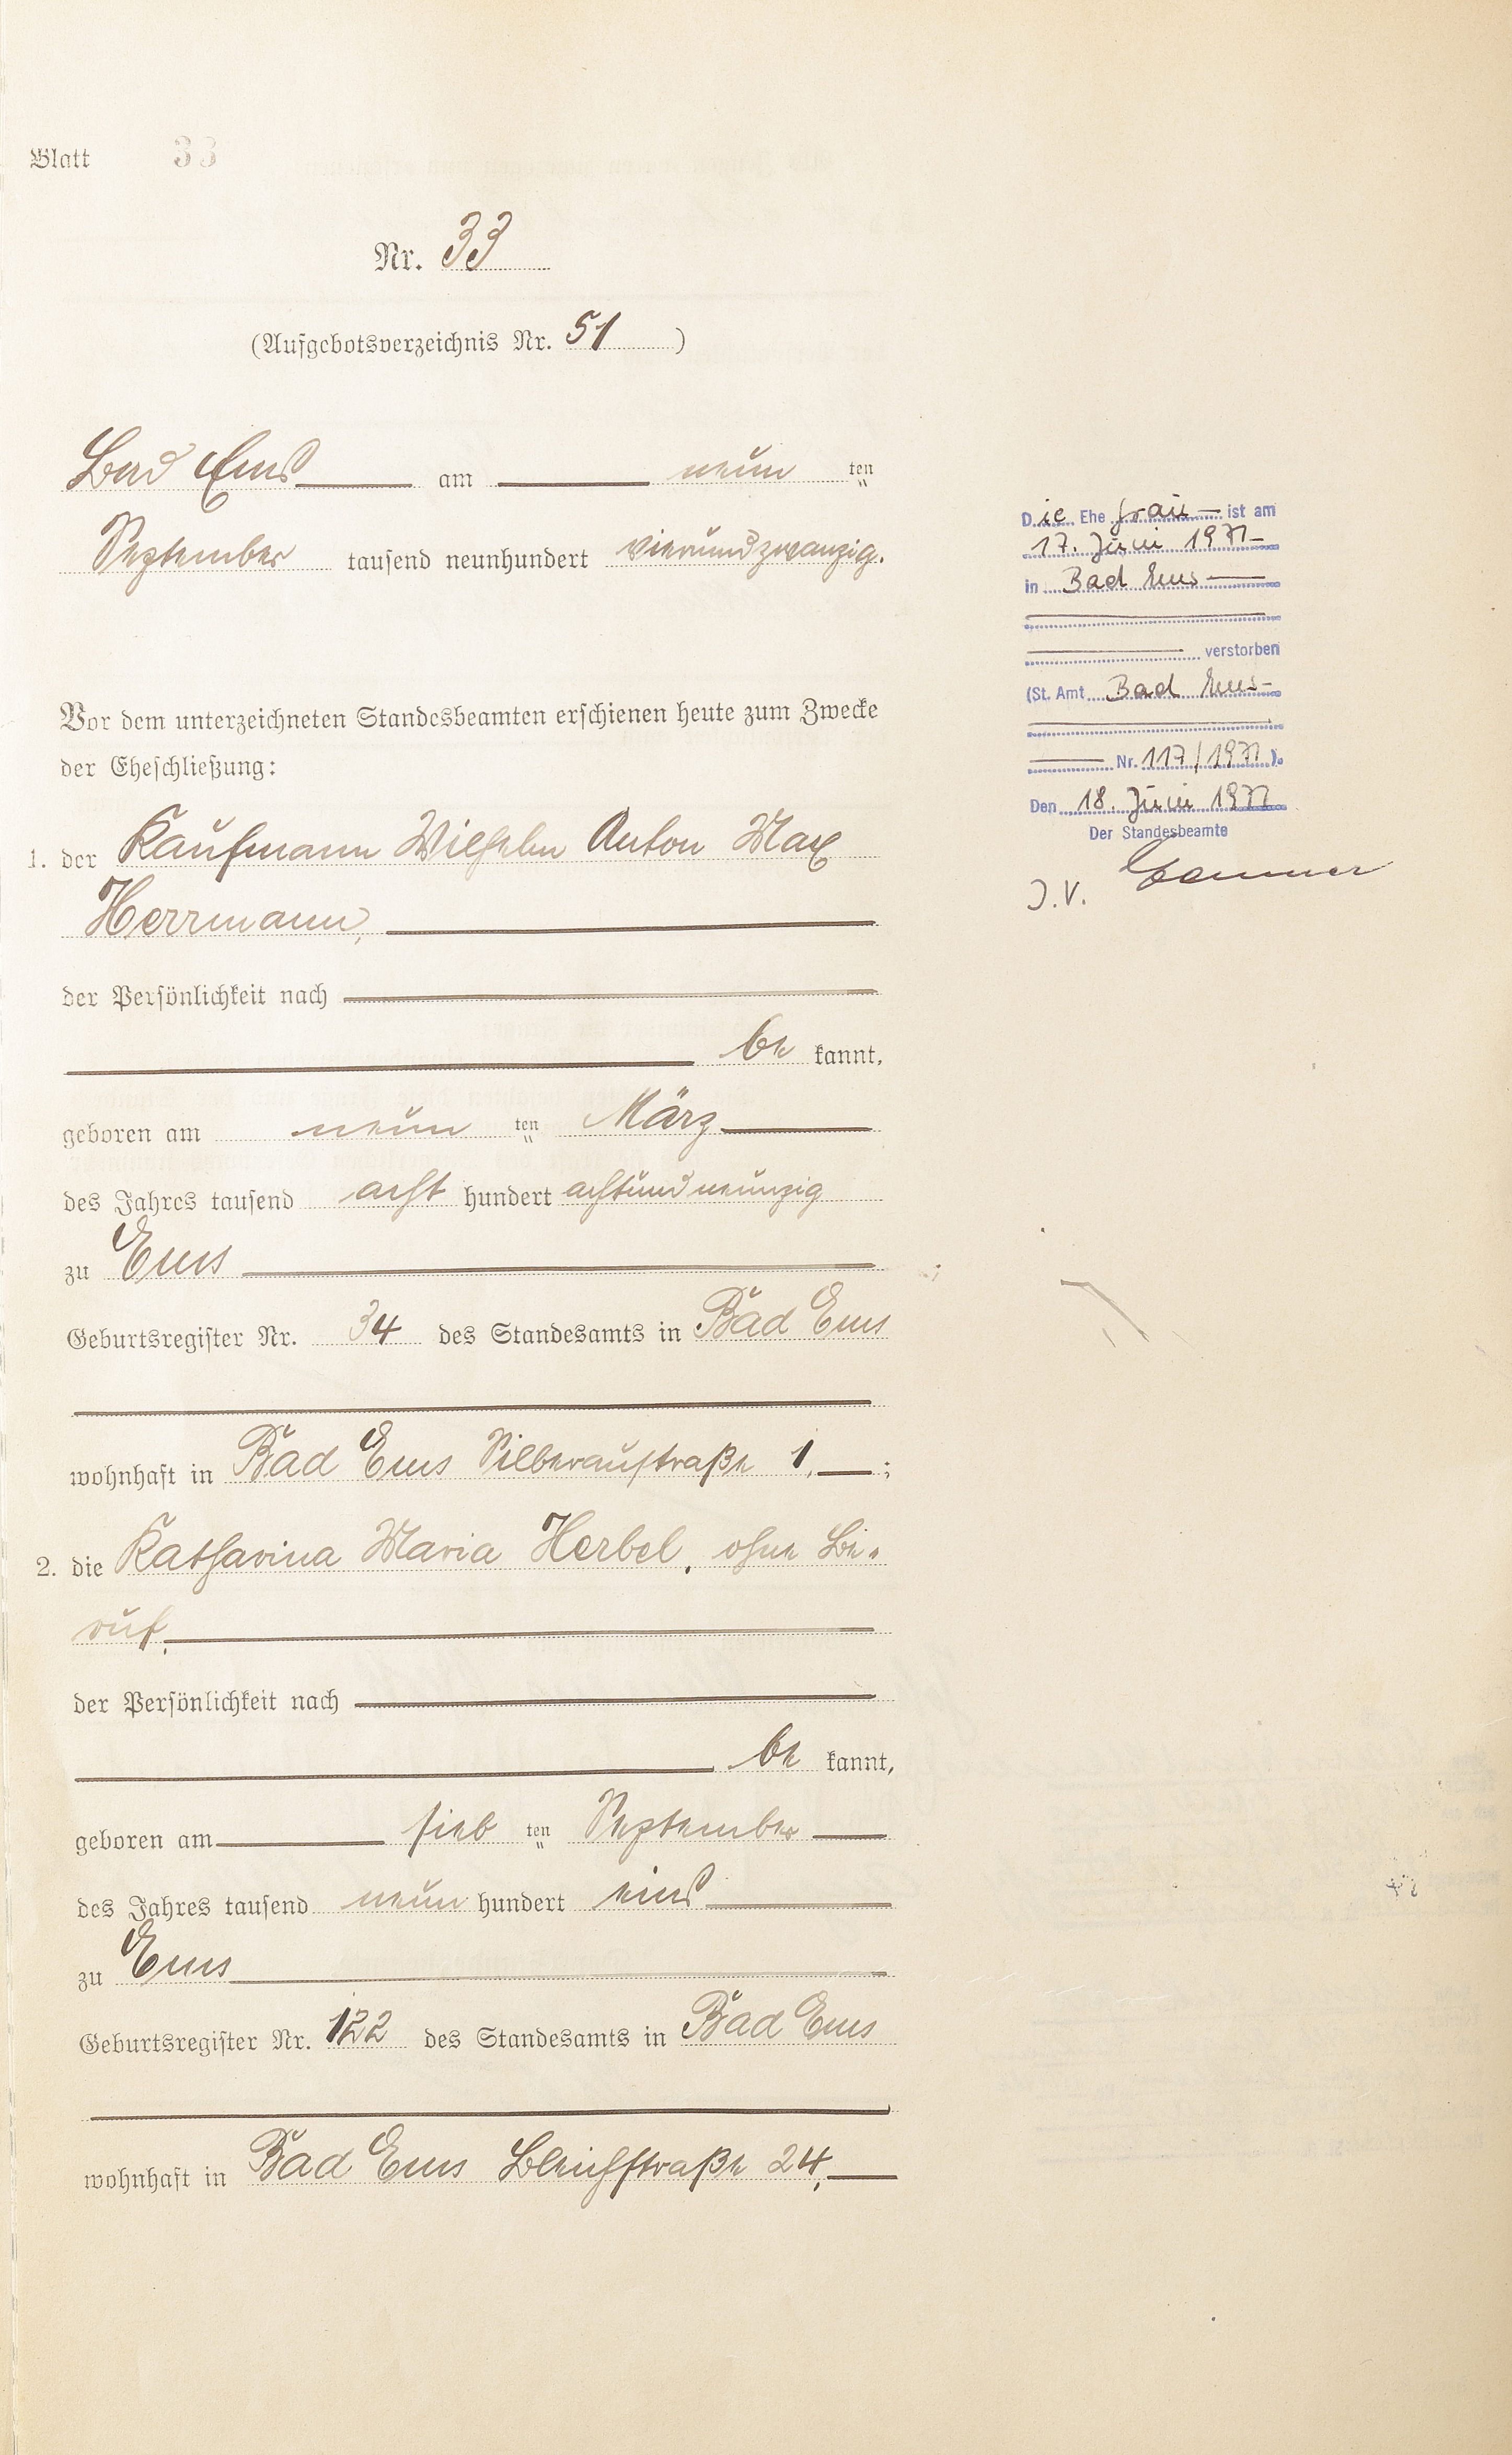 Blatt 33
Nr. 33
(Aufgebotsverzeichnis Nr. 51)
Bad Ems am neun ten
September tausend neunhundert vierundzwanzig.
Vor dem unterzeichneten Standesbeamten erschienen heute zum Zwecke
der Eheschließung:
1. der Kaufmann Wilhelm Anton Max
Herrmann,
der Persönlichkeit nach
be kannt,
geboren am neun ten März
des Jahres tausend acht hundert achtundneunzig
zu Ems
Geburtsregister Nr. 34 des Standesamts in Bad Ems
wohnhaft in Bad Ems Silberaustraße 1.;
2. die Katharina Maria Herbel, ohne Be-
ruf.
der Persönlichkeit nach
be kannt,
geboren am sieb ten September
des Jahres tausend neun hundert eins
zu Ems
Geburtsregister Nr. 122 des Standesamts in Bad Ems
wohnhaft in Bad Ems Bleichstraße 24,
Die Ehe frau ist am
17. Juni 1977
in Bad Ems
verstorben
(St. Amt Bad Ems
Nr. 117/1977).
Den 18. Juni 1977
Der Standesbeamte
J.V.